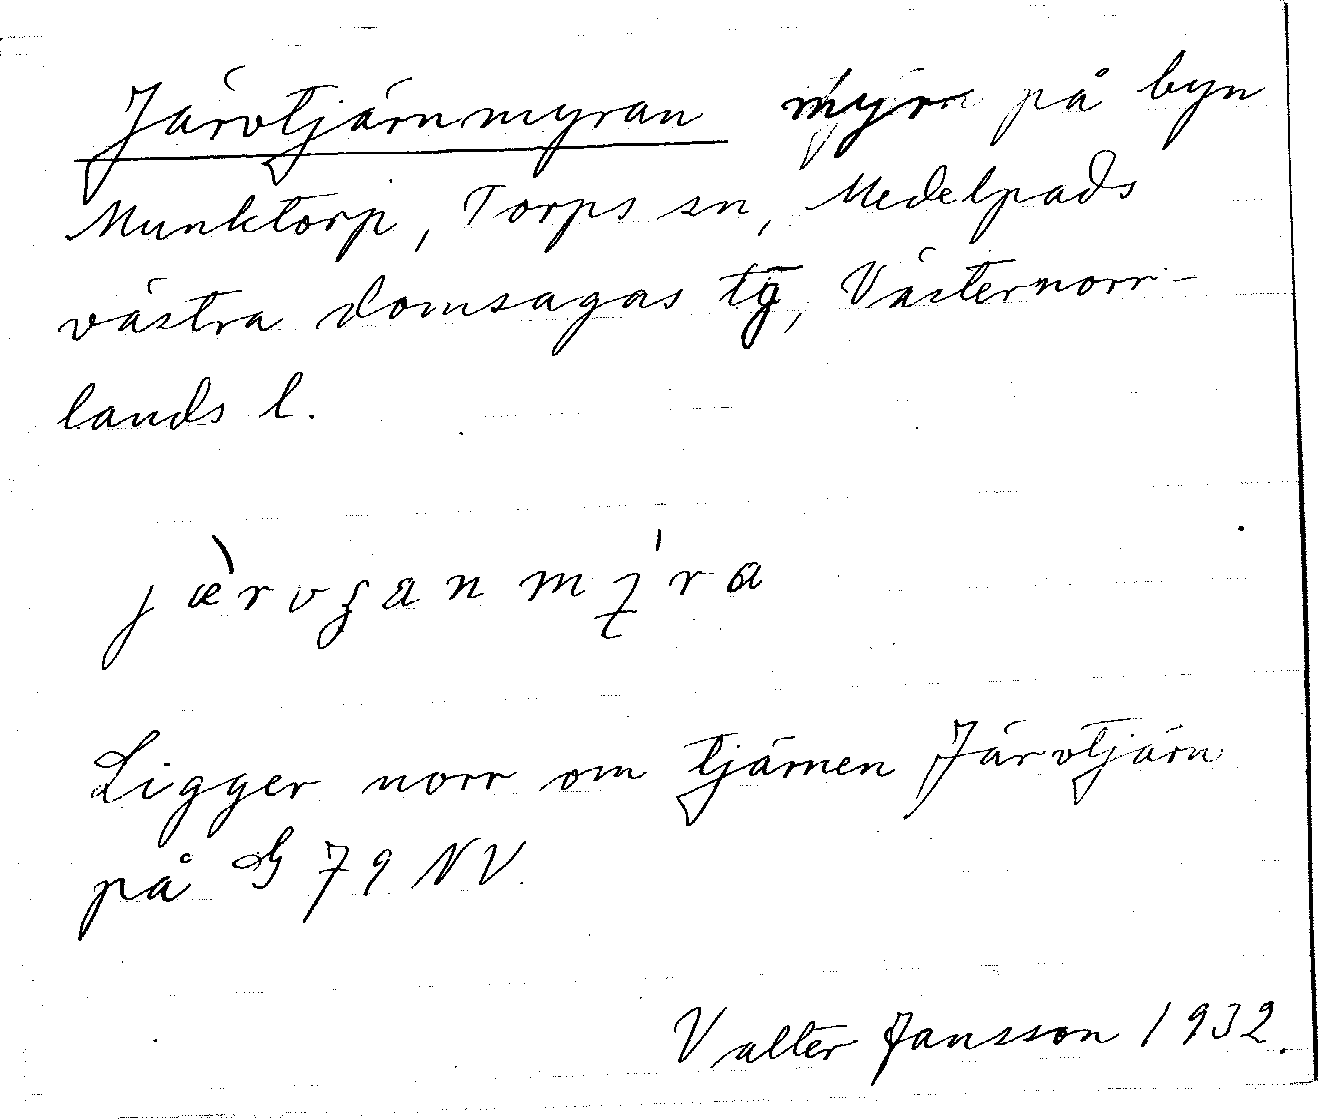 Järvtjärnmyran myr på byn
Munktorp, Torps sn, Medelpads
västra domsagas tg, Västernorr-
lands l.
Ligger norr om tjärnen Järvtjärn
på G 79 NV.
Valter Jansson 1932.